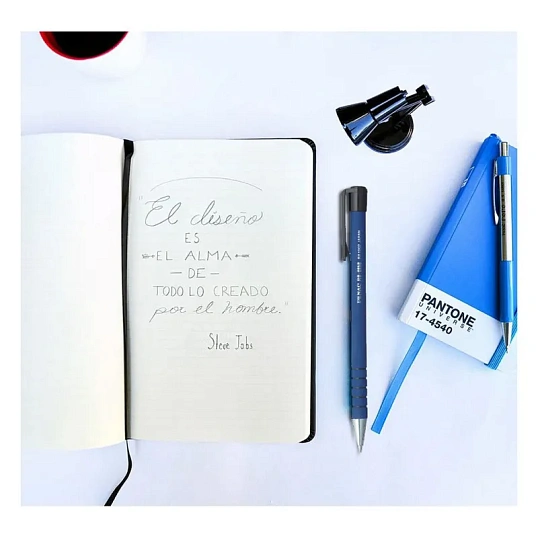 "El diseño
ES
EL ALMA
— DE —
TODO LO CREADO
por el hombre."
Steve Jobs
PANTONE
UNIVERSE
17-4540